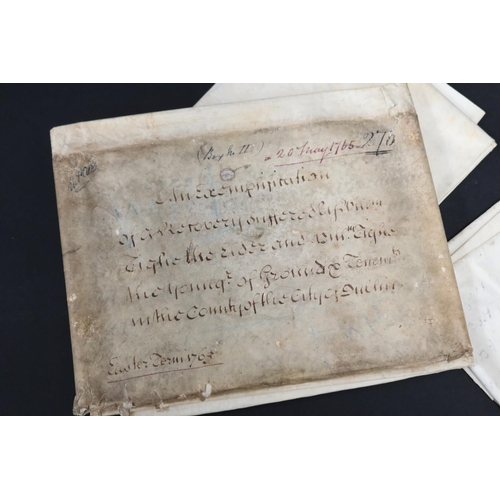 (Box No 11.) 20th May 1766
An Exemplification
of a Recovery suffered by Wm
Tighe the elder and Wm Tighe
the Youngr. of Ground & Tenemts
in the County of the City of Dublin
Easter Term